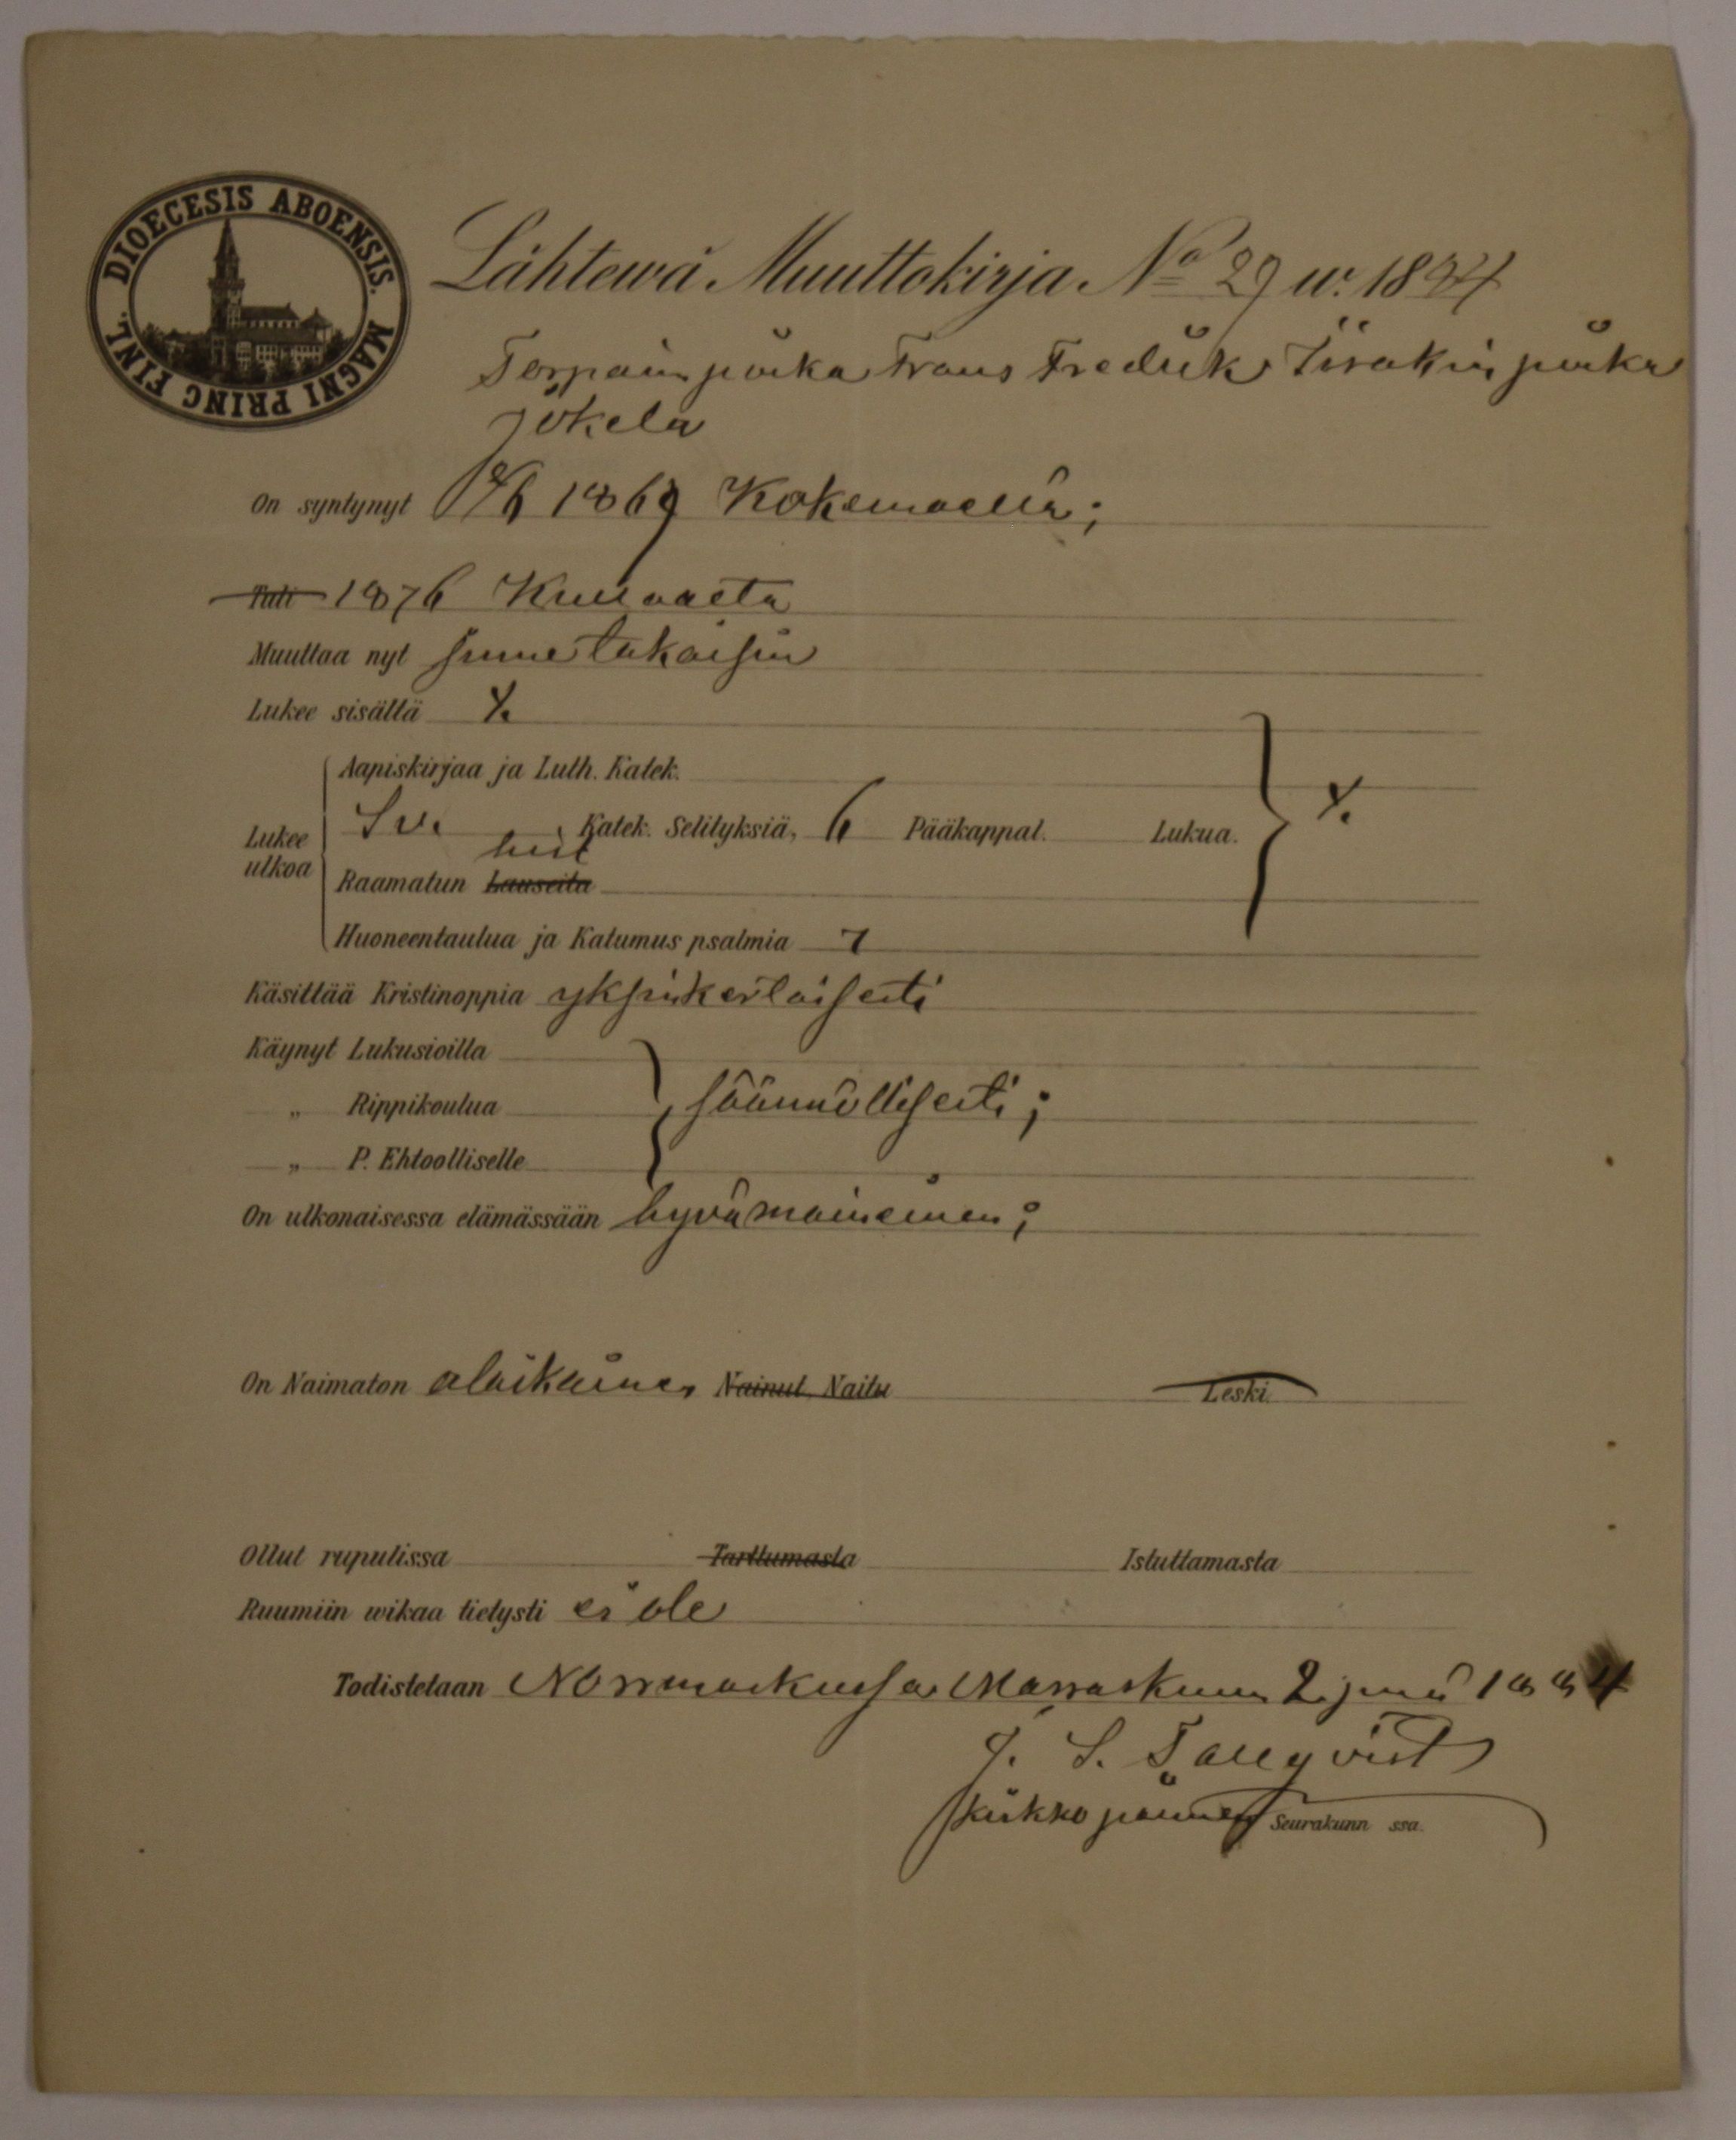 DIOECESIS ABOENSIS. MAGNI PRINC FINL.
Lähtewä Muuttokirja No 29 w. 1884
Torparin poika Frans Fredrik Iisakin poika
Jokela
On syntynyt 1869 Kokemäellä;
Tuli 1876 Kullaalta
Muuttaa nyt sinne takaisin
Lukee sisältä
Aapiskirjaa ja Luth. Katek.
Lukee ulkoa Sv. Katek. Selityksiä, 6 Pääkappal. Lukua.
hist
Raamatun Lauseita
Huoneentaulua ja Katumus psalmia 7
Käsittää Kristinoppia yksinkertaisesti
Käynyt Lukusioilla
„ Rippikoulua säännöllisesti;
„ P. Ehtoolliselle
On ulkonaisessa elämässään hyvämaineinen;
On Naimaton alaikäinen Nainut, Naitu Leski.
Ollut rupulissa Tarttumasta Istuttamasta
Ruumiin wikaa tietysti ei ole
Todistetaan Norrmarkussa Marraskuun 2 p:nä 1884
J. S. Tallqvist
Kirkkoherra Seurakunn ssa.